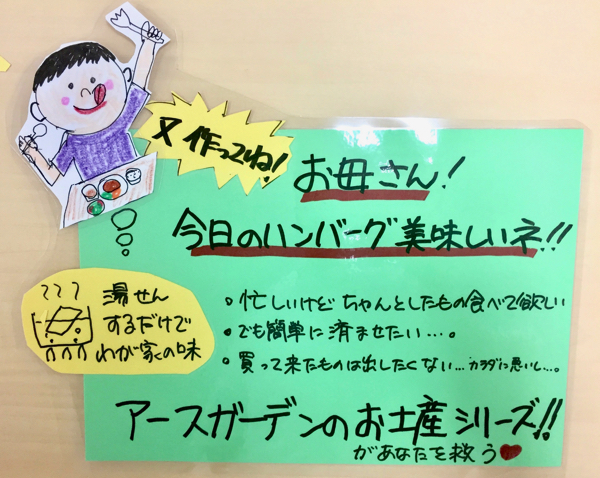 又作ってね!
お母さん!
今日のハンバーグ美味しいネ!!
湯せん
するだけで
わが家の味
。忙しいけどちゃんとしたもの食べて欲しい
。でも簡単に済ませたい…。
。買って来たものは出したくない…カラダに悪いし…。
アースガーデンのお土産シリーズ!!
があなたを救う♥